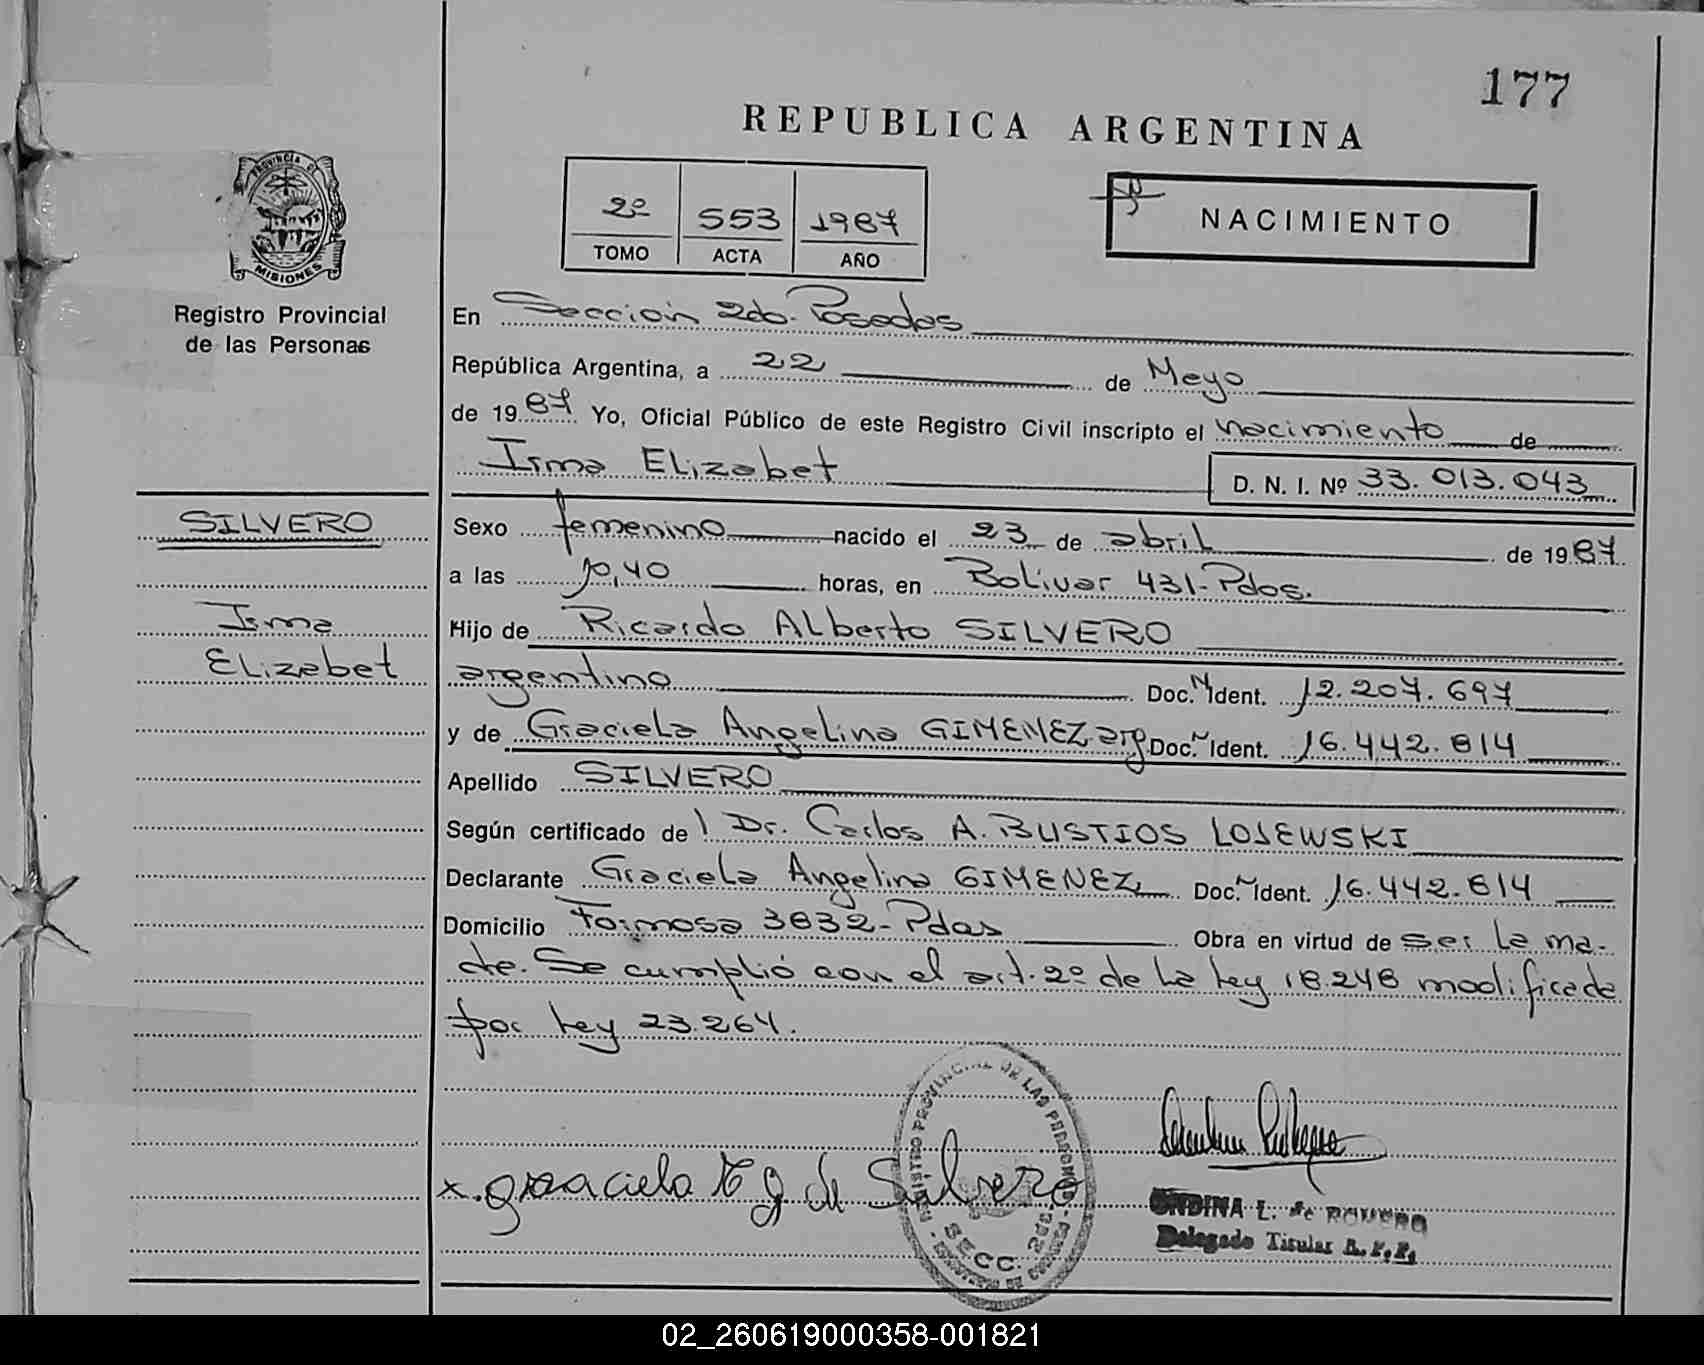 177
REPUBLICA ARGENTINA
PROVINCIA DE
MISIONES
Registro Provincial
de las Personas
2º 553 1987
TOMO ACTA AÑO
NACIMIENTO
En Sección 2da. Posadas
República Argentina, a 22 de Mayo
de 1987 Yo, Oficial Público de este Registro Civil inscripto el nacimiento de
Irma Elizabet D. N. I. Nº 33.013.043
SILVERO
Irma
Elizabet
Sexo femenino nacido el 23 de abril de 1987
a las 10,40 horas, en Bolivar 431-Pdas.
Hijo de Ricardo Alberto SILVERO
argentino Doc. N Ident. 12.207.697
y de Graciela Angelina GIMENEZ arg Doc. N Ident. 16.442.814
Apellido SILVERO
Según certificado del Dr. Carlos A. BUSTIOS LOJEWSKI
Declarante Graciela Angelina GIMENEZ Doc. N Ident. 16.442.814
Domicilio Formosa 3832-Pdas Obra en virtud de ser la ma-
dre. Se cumplió con el art. 2º de la Ley 18.248 modificada
por Ley 23.264.
REGISTRO PROVINCIAL DE LAS PERSONAS
SECC. 2da.
x. graciela g de Silvero
ONDINA L. de ROMERO
Delegado Titular R. P. P.
02_260619000358-001821